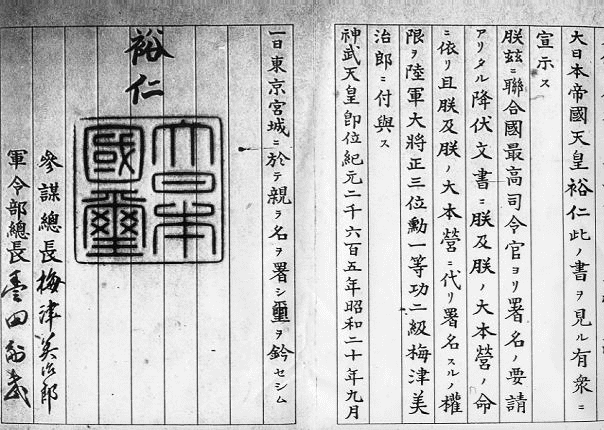 大日本帝國天皇裕仁此ノ書ヲ見ル有衆ニ
宣示ス
朕玆ニ聯合國最高司令官ヨリ署名ノ要請
アリタル降伏文書ニ朕及朕ノ大本營ノ命
ニ依リ且朕及朕ノ大本營ニ代リ署名スルノ權
限ヲ陸軍大將正三位勳一等功二級梅津美
治郎ニ付與ス
神武天皇卽位紀元二千六百五年昭和二十年九月
一日東京宮城ニ於テ親ラ名ヲ署シ璽ヲ鈐セシム
裕仁
大日本國璽
參謀總長梅津美治郎
軍令部總長豊田副武